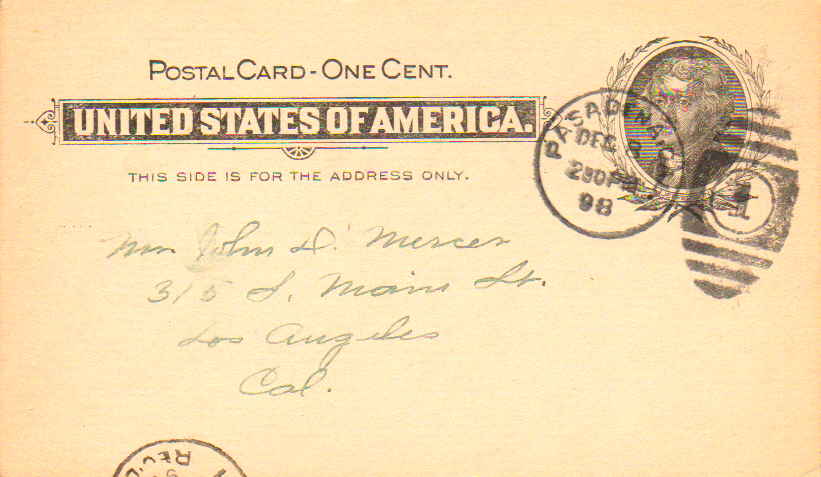 POSTAL CARD - ONE CENT.
UNITED STATES OF AMERICA.
THIS SIDE IS FOR THE ADDRESS ONLY.
PASADENA
DEC 8
230PM
98
1
Mrs John D. Mercer
315 S. Main St.
Los Angeles
Cal.
REC'D